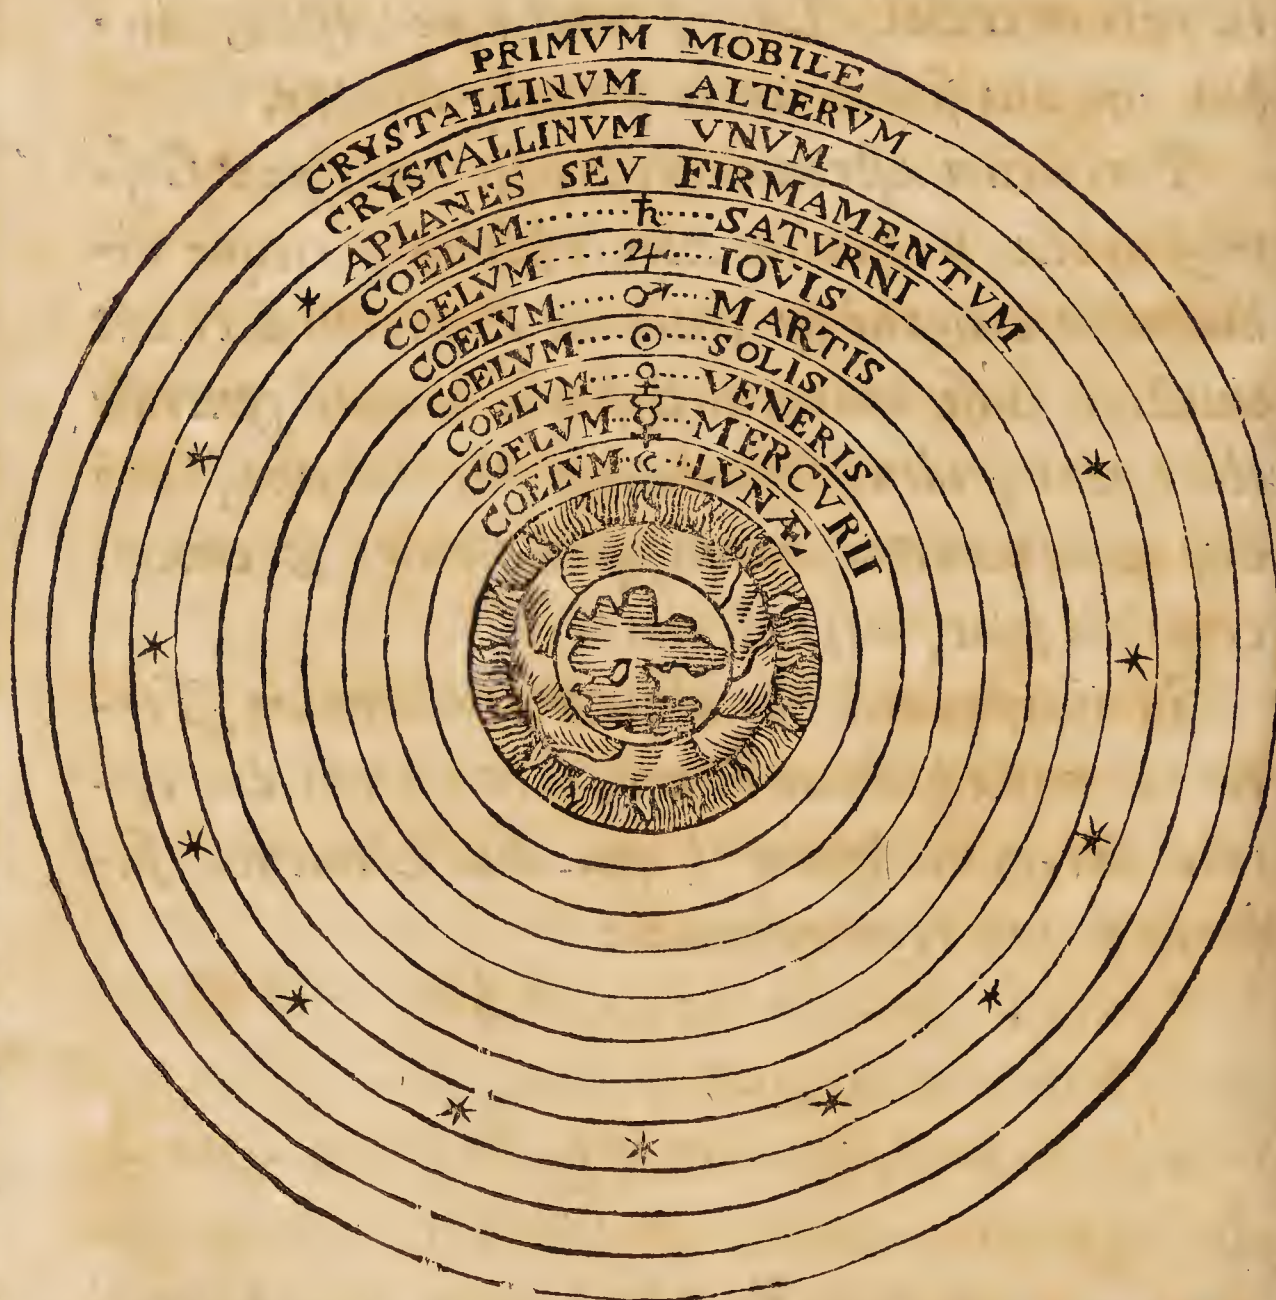 PRIMVM MOBILE
CRYSTALLINVM ALTERVM
CRYSTALLINVM VNVM
APLANES SEV FIRMAMENTVM
COELVM ♄ SATVRNI
COELVM ♃ IOVIS
COELVM ♂ MARTIS
COELVM ☉ SOLIS
COELVM ♀ VENERIS
COELVM ☿ MERCVRII
COELVM ☾ LVNÆ